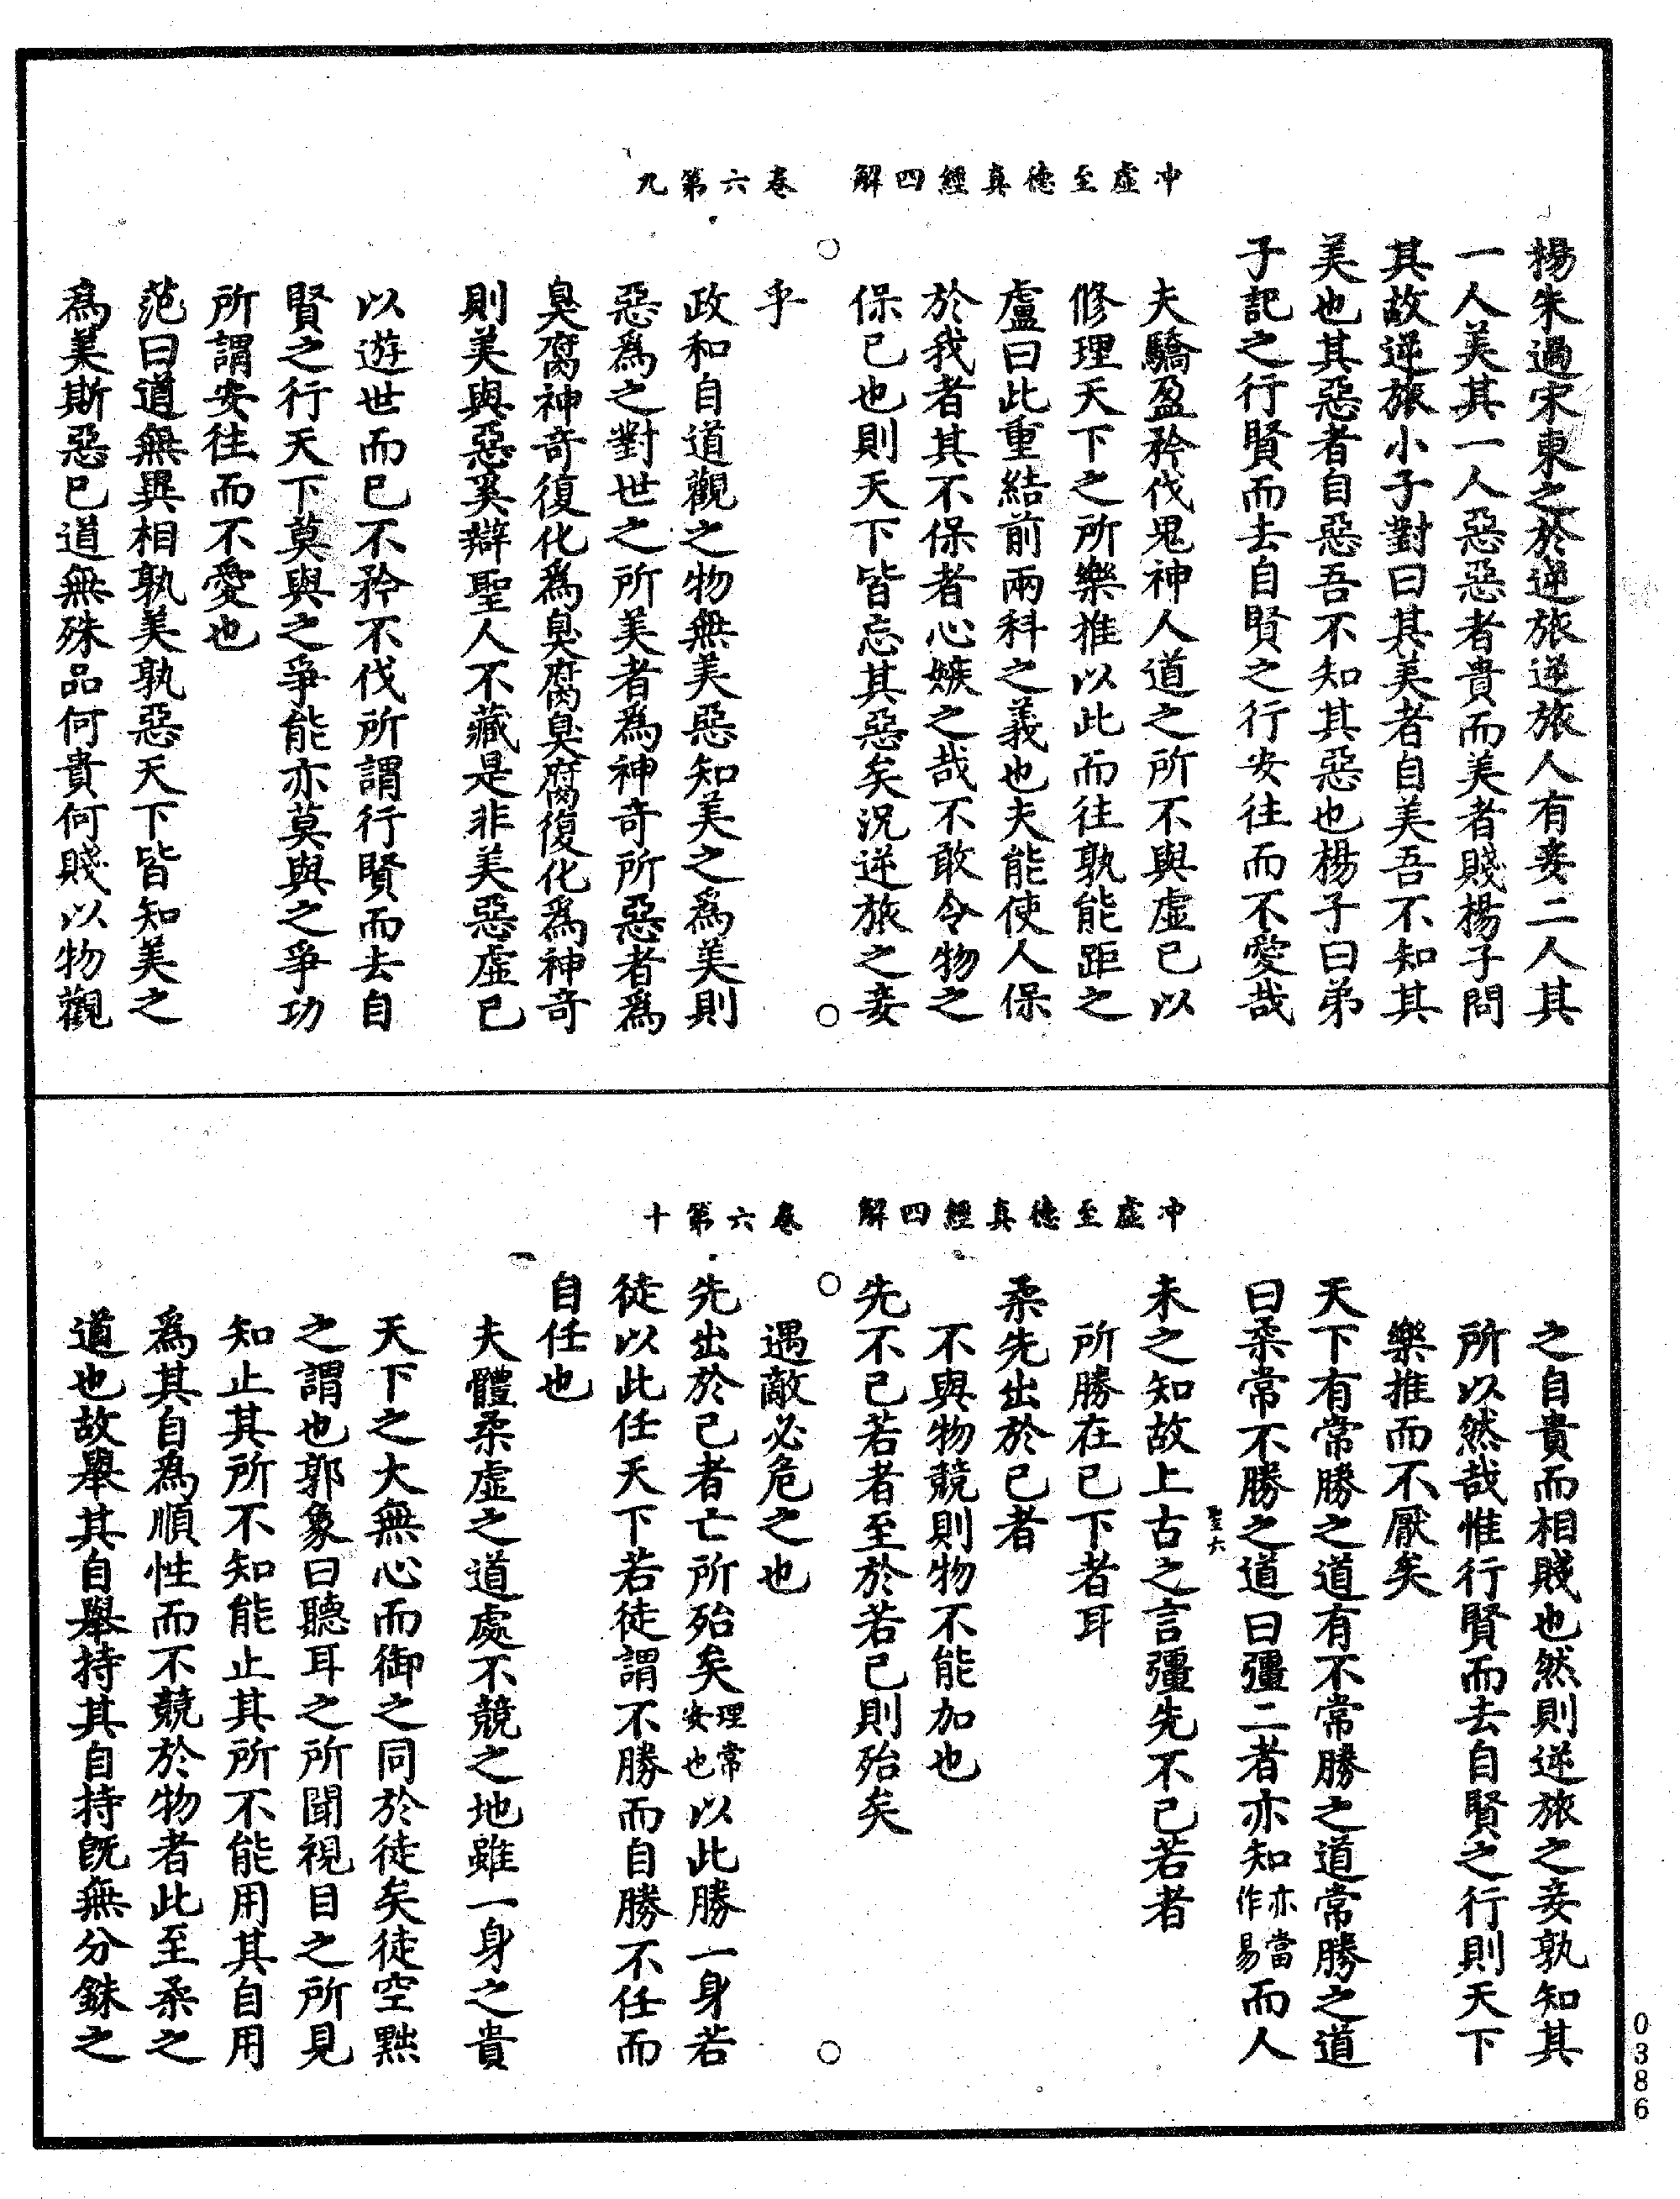 冲虛至德真經四解　卷六第九
楊朱過宋東之於逆旅逆旅人有妾二人其
一人美其一人惡惡者貴而美者賤楊子問
其故逆旅小子對曰其美者自美吾不知其
美也其惡者自惡吾不知其惡也楊子曰弟
子記之行賢而去自賢之行安往而不愛哉
夫驕盈矜伐鬼神人道之所不與虛己以
修理天下之所樂推以此而往孰能距之
盧曰此重結前兩科之義也夫能使人保
於我者其不保者心嫉之哉不敢令物之
保己也則天下皆忘其惡矣況逆旅之妾
乎
政和自道觀之物無美惡知美之為美則
惡為之對世之所美者為神奇所惡者為
臭腐神奇復化為臭腐臭腐復化為神奇
則美與惡奚辯聖人不藏是非美惡虛己
以遊世而已不矜不伐所謂行賢而去自
賢之行天下莫與之爭能亦莫與之爭功
所謂安往而不愛也
范曰道無異相孰美孰惡天下皆知美之
為美斯惡已道無殊品何貴何賤以物觀
冲虛至德真經四解　卷六第十
之自貴而相賤也然則逆旅之妾孰知其
所以然哉惟行賢而去自賢之行則天下
樂推而不厭矣
天下有常勝之道有不常勝之道常勝之道
曰柔常不勝之道曰彊二者亦知亦當作易而人
聖六
未之知故上古之言彊先不己若者
所勝在己下者耳
柔先出於己者
不與物競則物不能加也
先不己若者至於若己則殆矣
遇敵必危之也
先出於己者亡所殆矣理常安也以此勝一身若
徒以此任天下若徒謂不勝而自勝不任而
自任也
夫體柔虛之道處不競之地雖一身之貴
天下之大無心而御之同於徒矣徒空默
之謂也郭象曰聽耳之所聞視目之所見
知止其所不知能止其所不能用其自用
為其自為順性而不競於物者此至柔之
道也故舉其自舉持其自持既無分銖之
0386